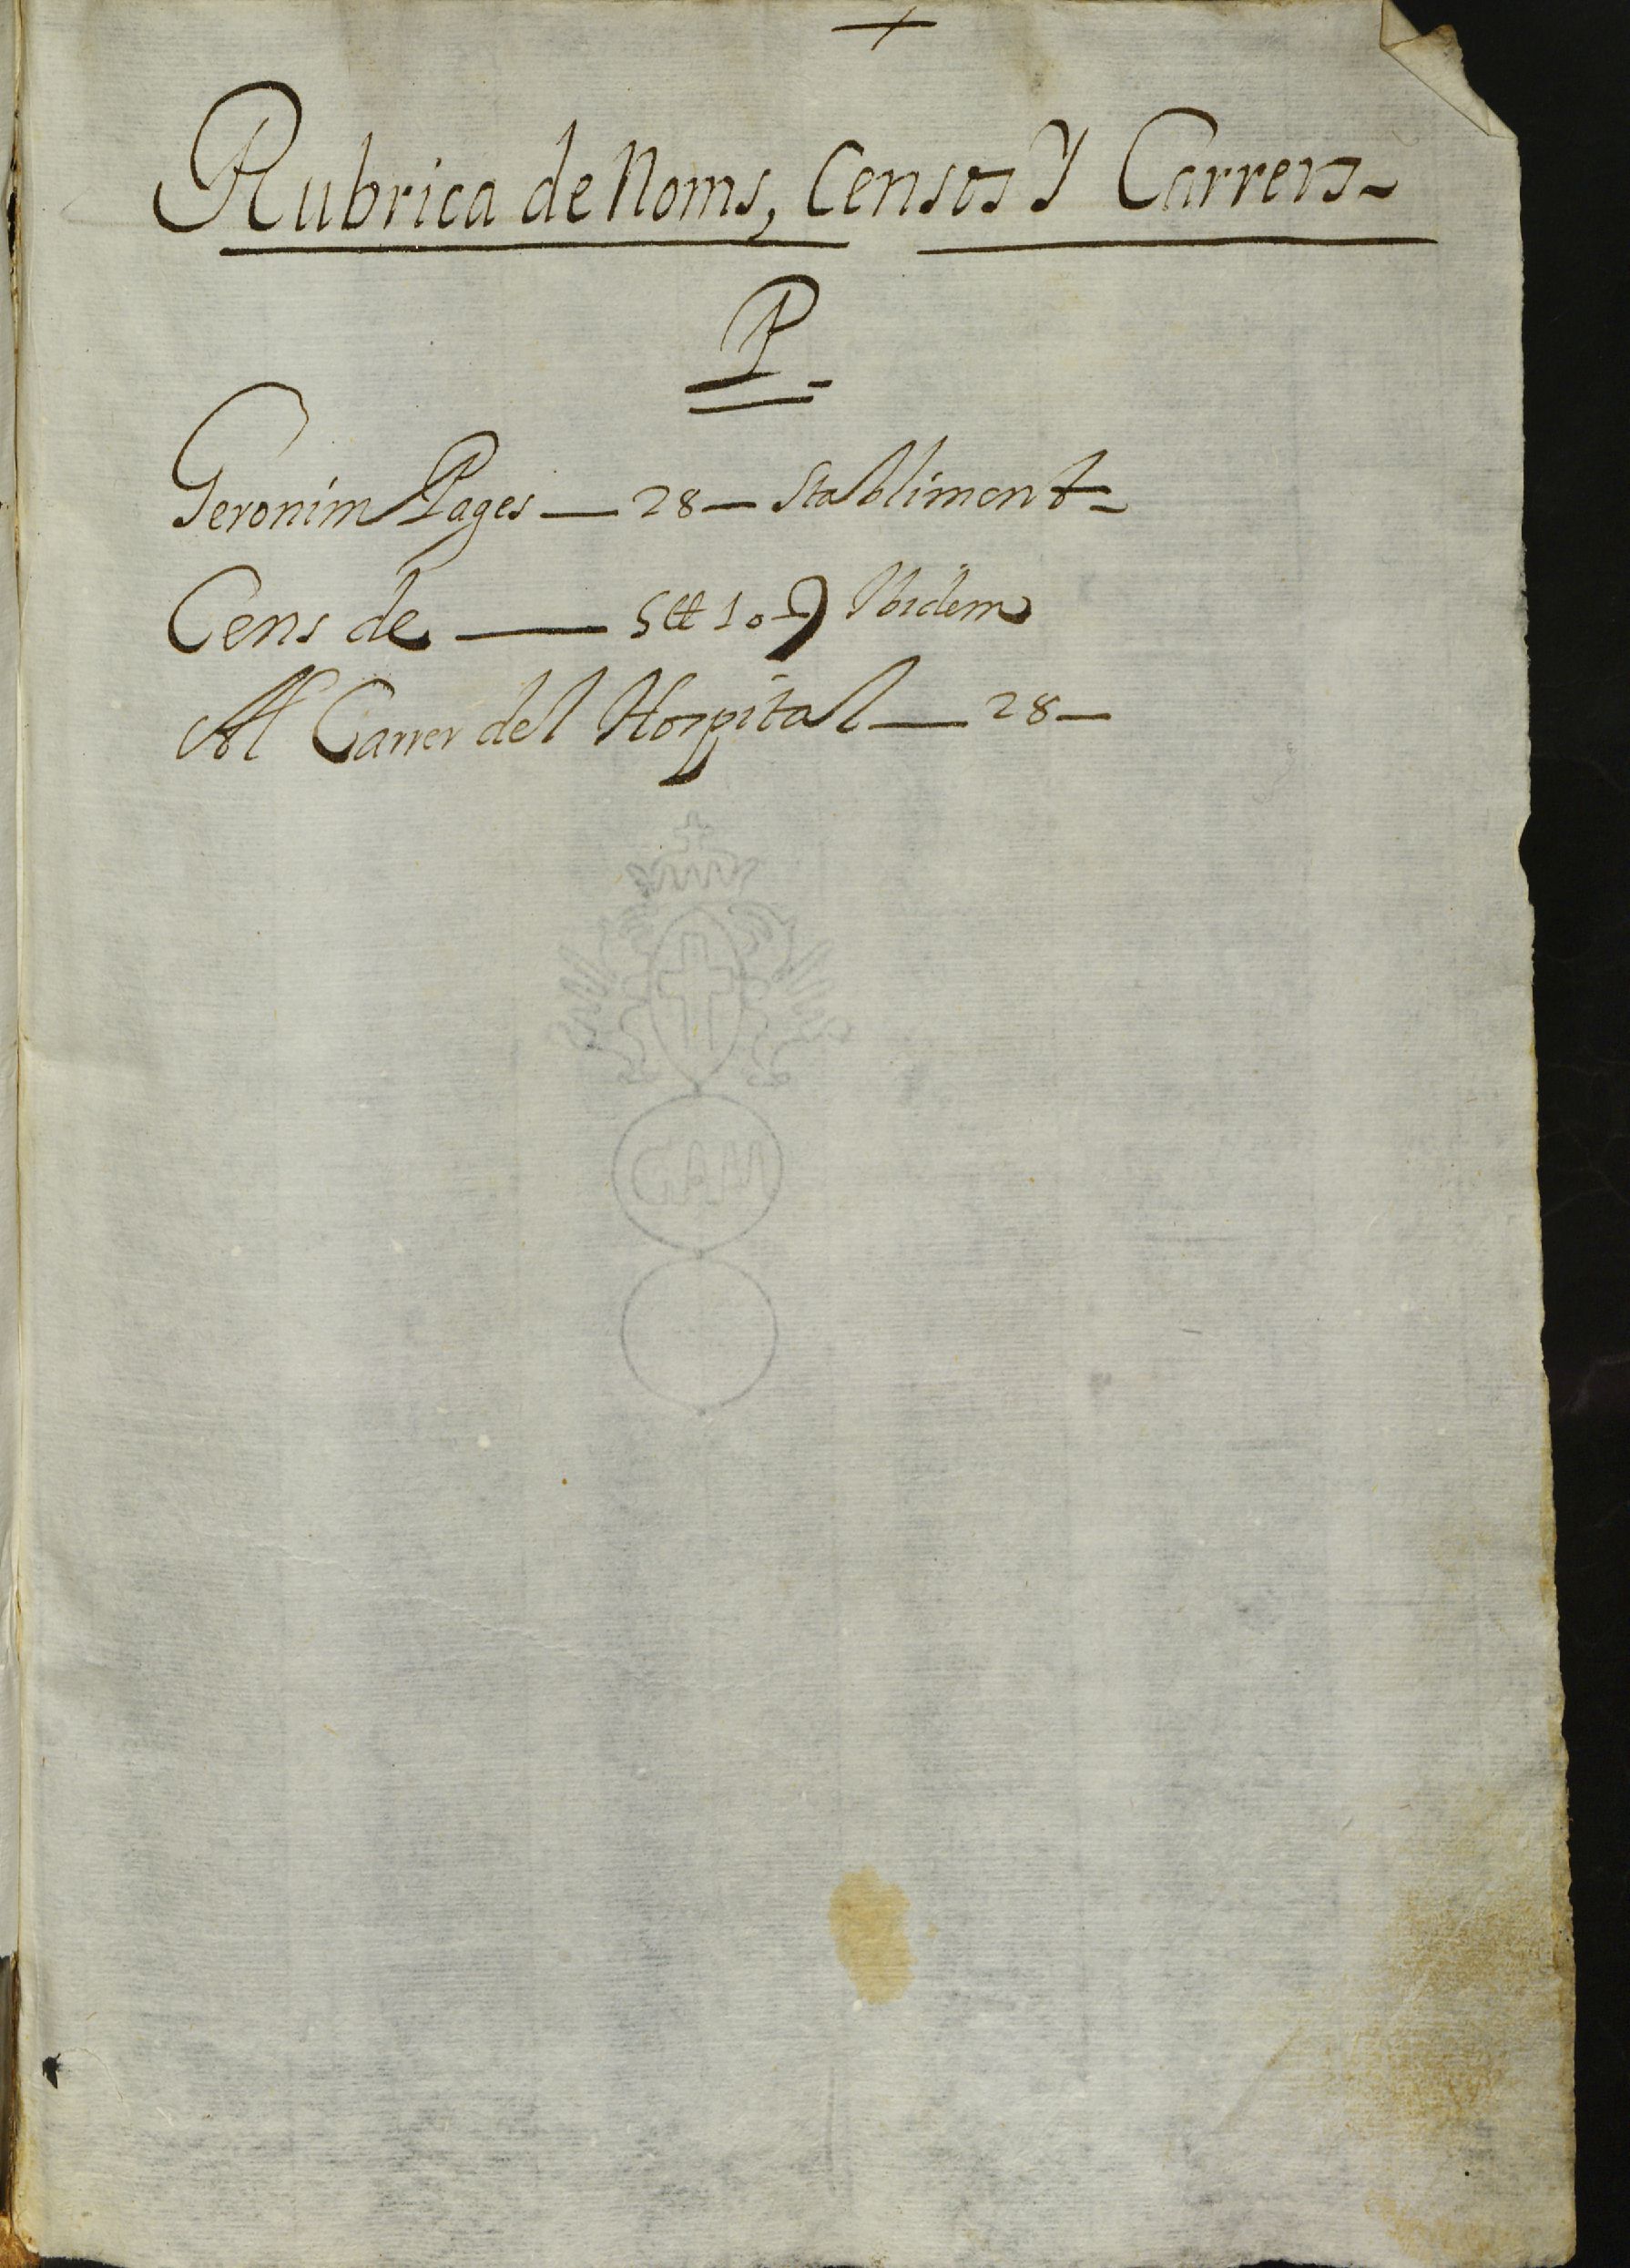 +
Rubrica de Noms, Censos Y Carrers
P
Geronim Pages — 28 — Stabliment
Cens de — 5 ₶ 10 Ibidem
Al Carrer del Hospital — 28 —
GAM